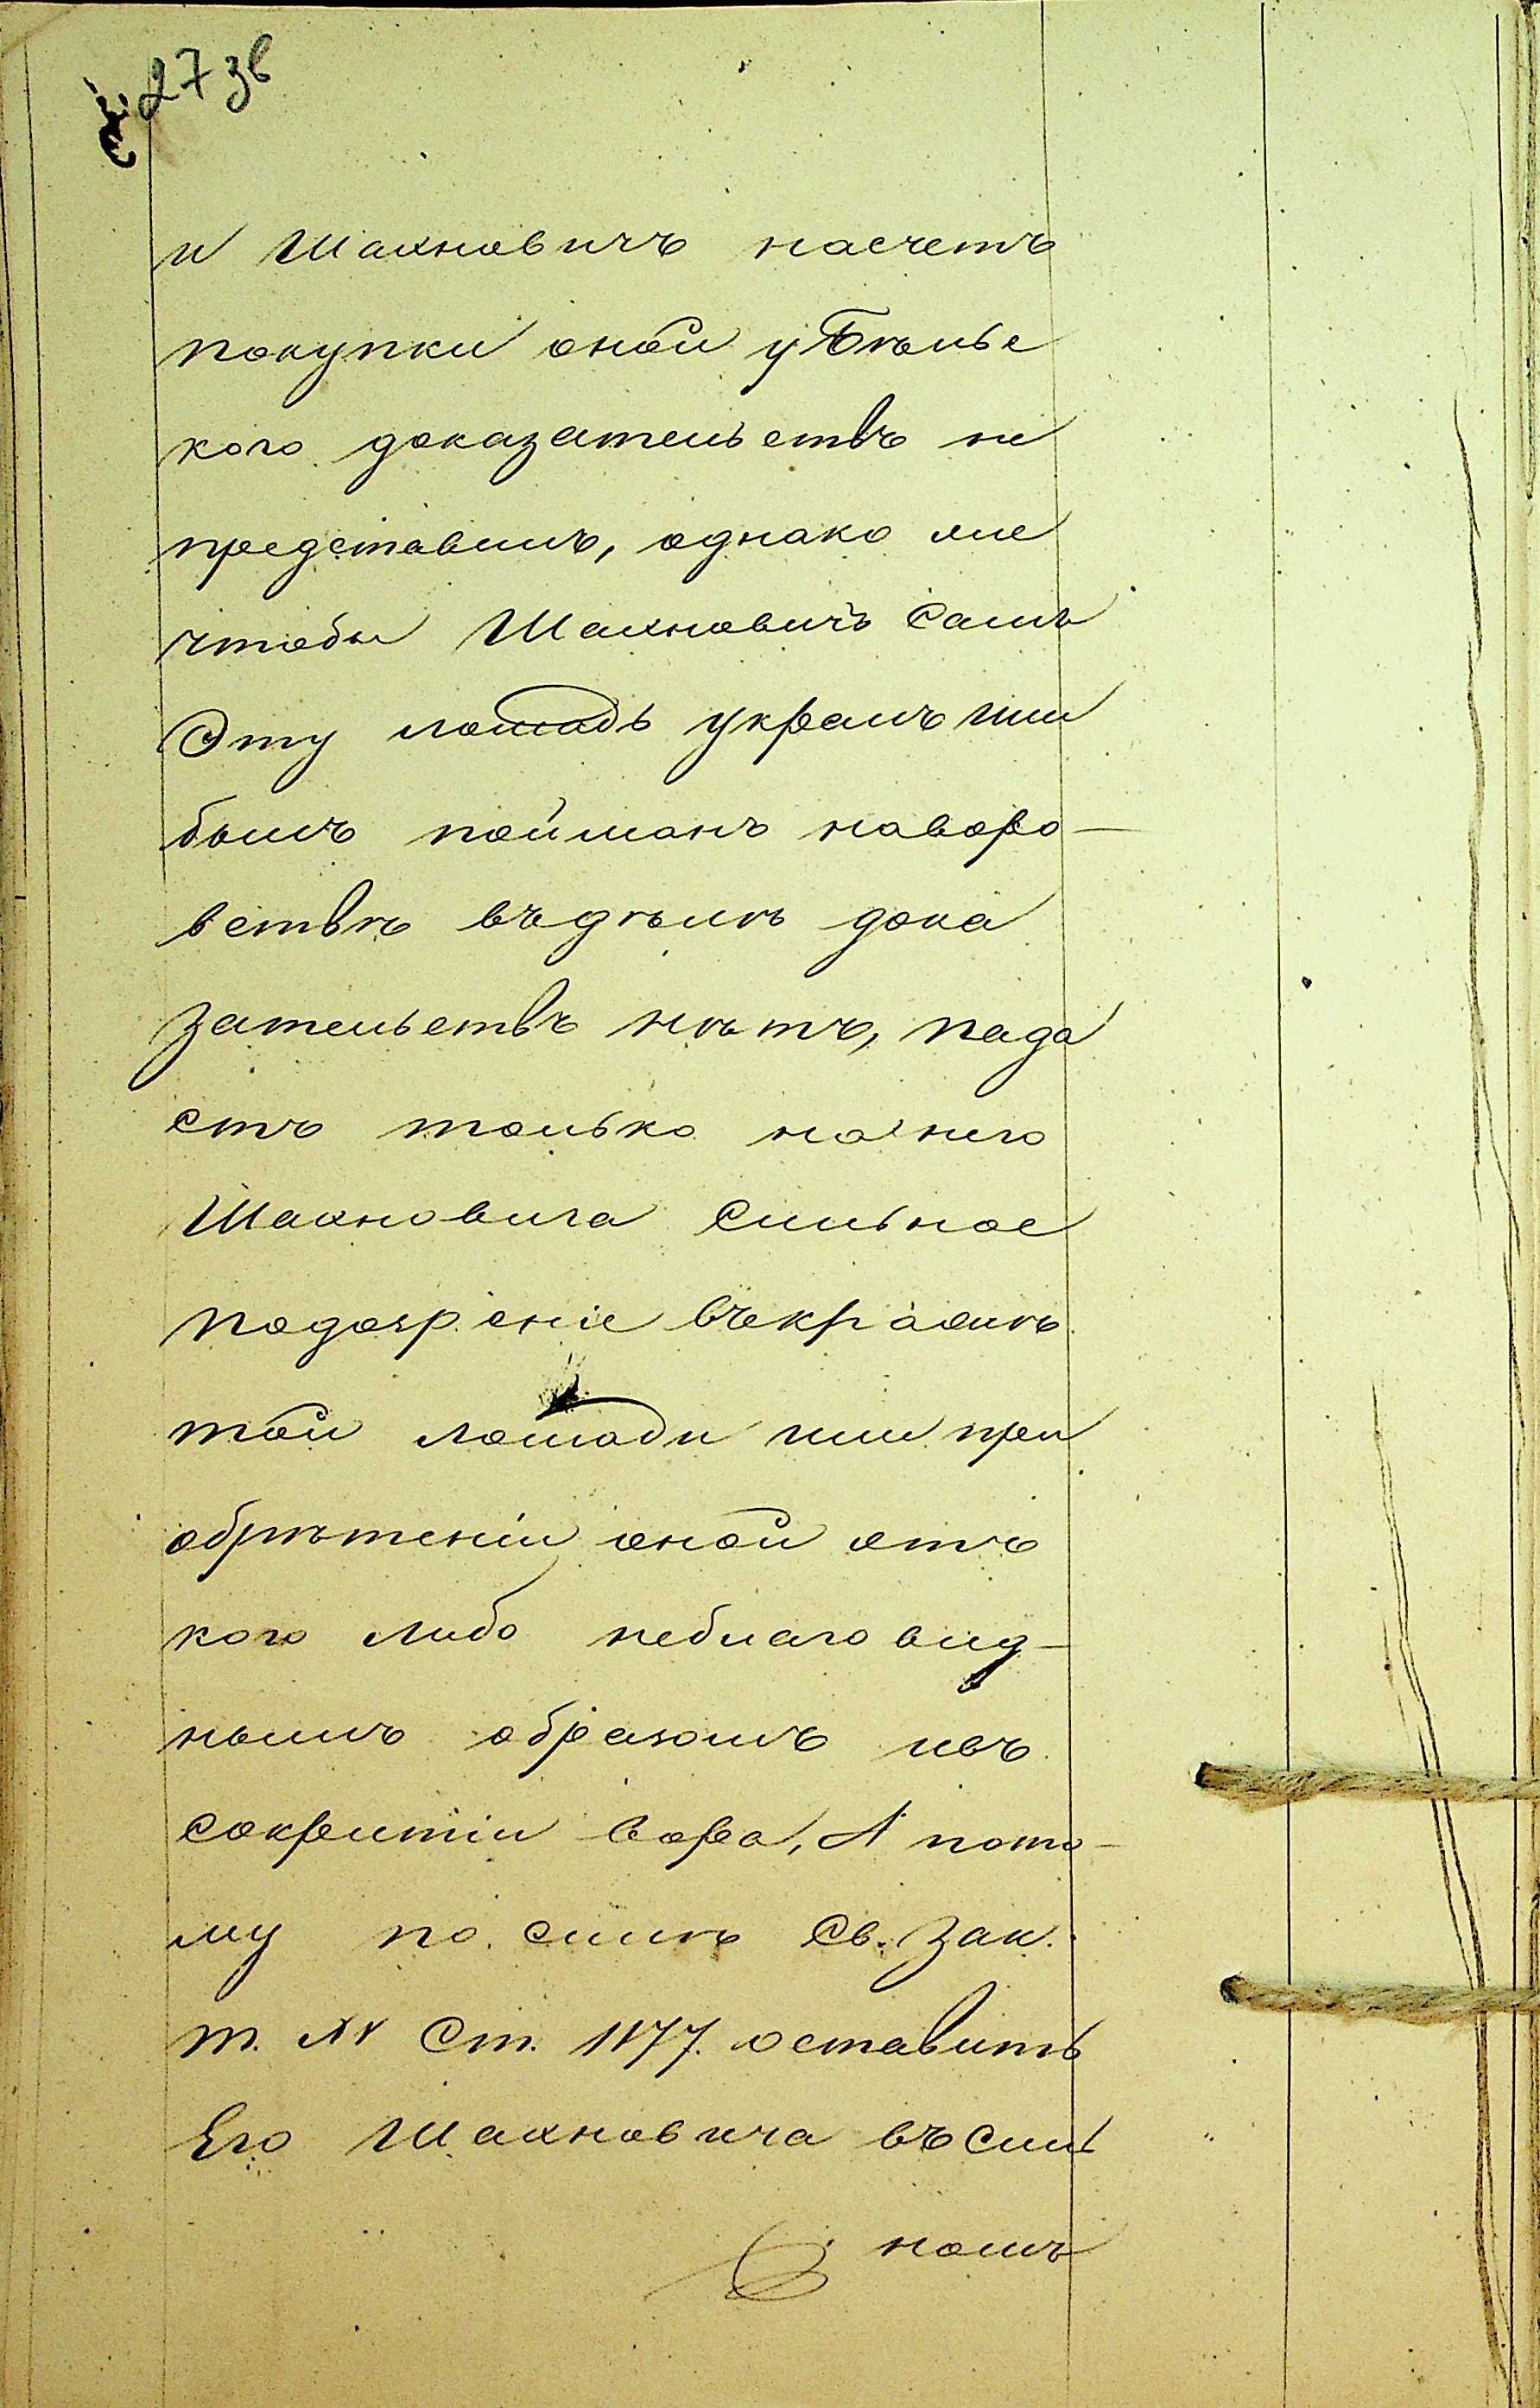 27 зв
и Шахновичъ насчетъ
покупки оной у Бѣльс
кого доказательствъ не
представилъ, однако же
чтобы Шахновичъ самъ
Эту лошадь укралъ или
былъ пойманъ наворо-
вствѣ въдѣлѣ дока
зательствъ нѣтъ, пада
етъ только на него
Шахновича сильное
подозреніе въкражѣ
той лошади или при
обрѣтеніи оной отъ
кого либо неблаговид-
нымъ образомъ ивъ
сокрытіи вора, А пото-
му по силѣ Св. Зак.
т. XV Ст. 1177. оставить
Его Шахновича въсиль
номъ